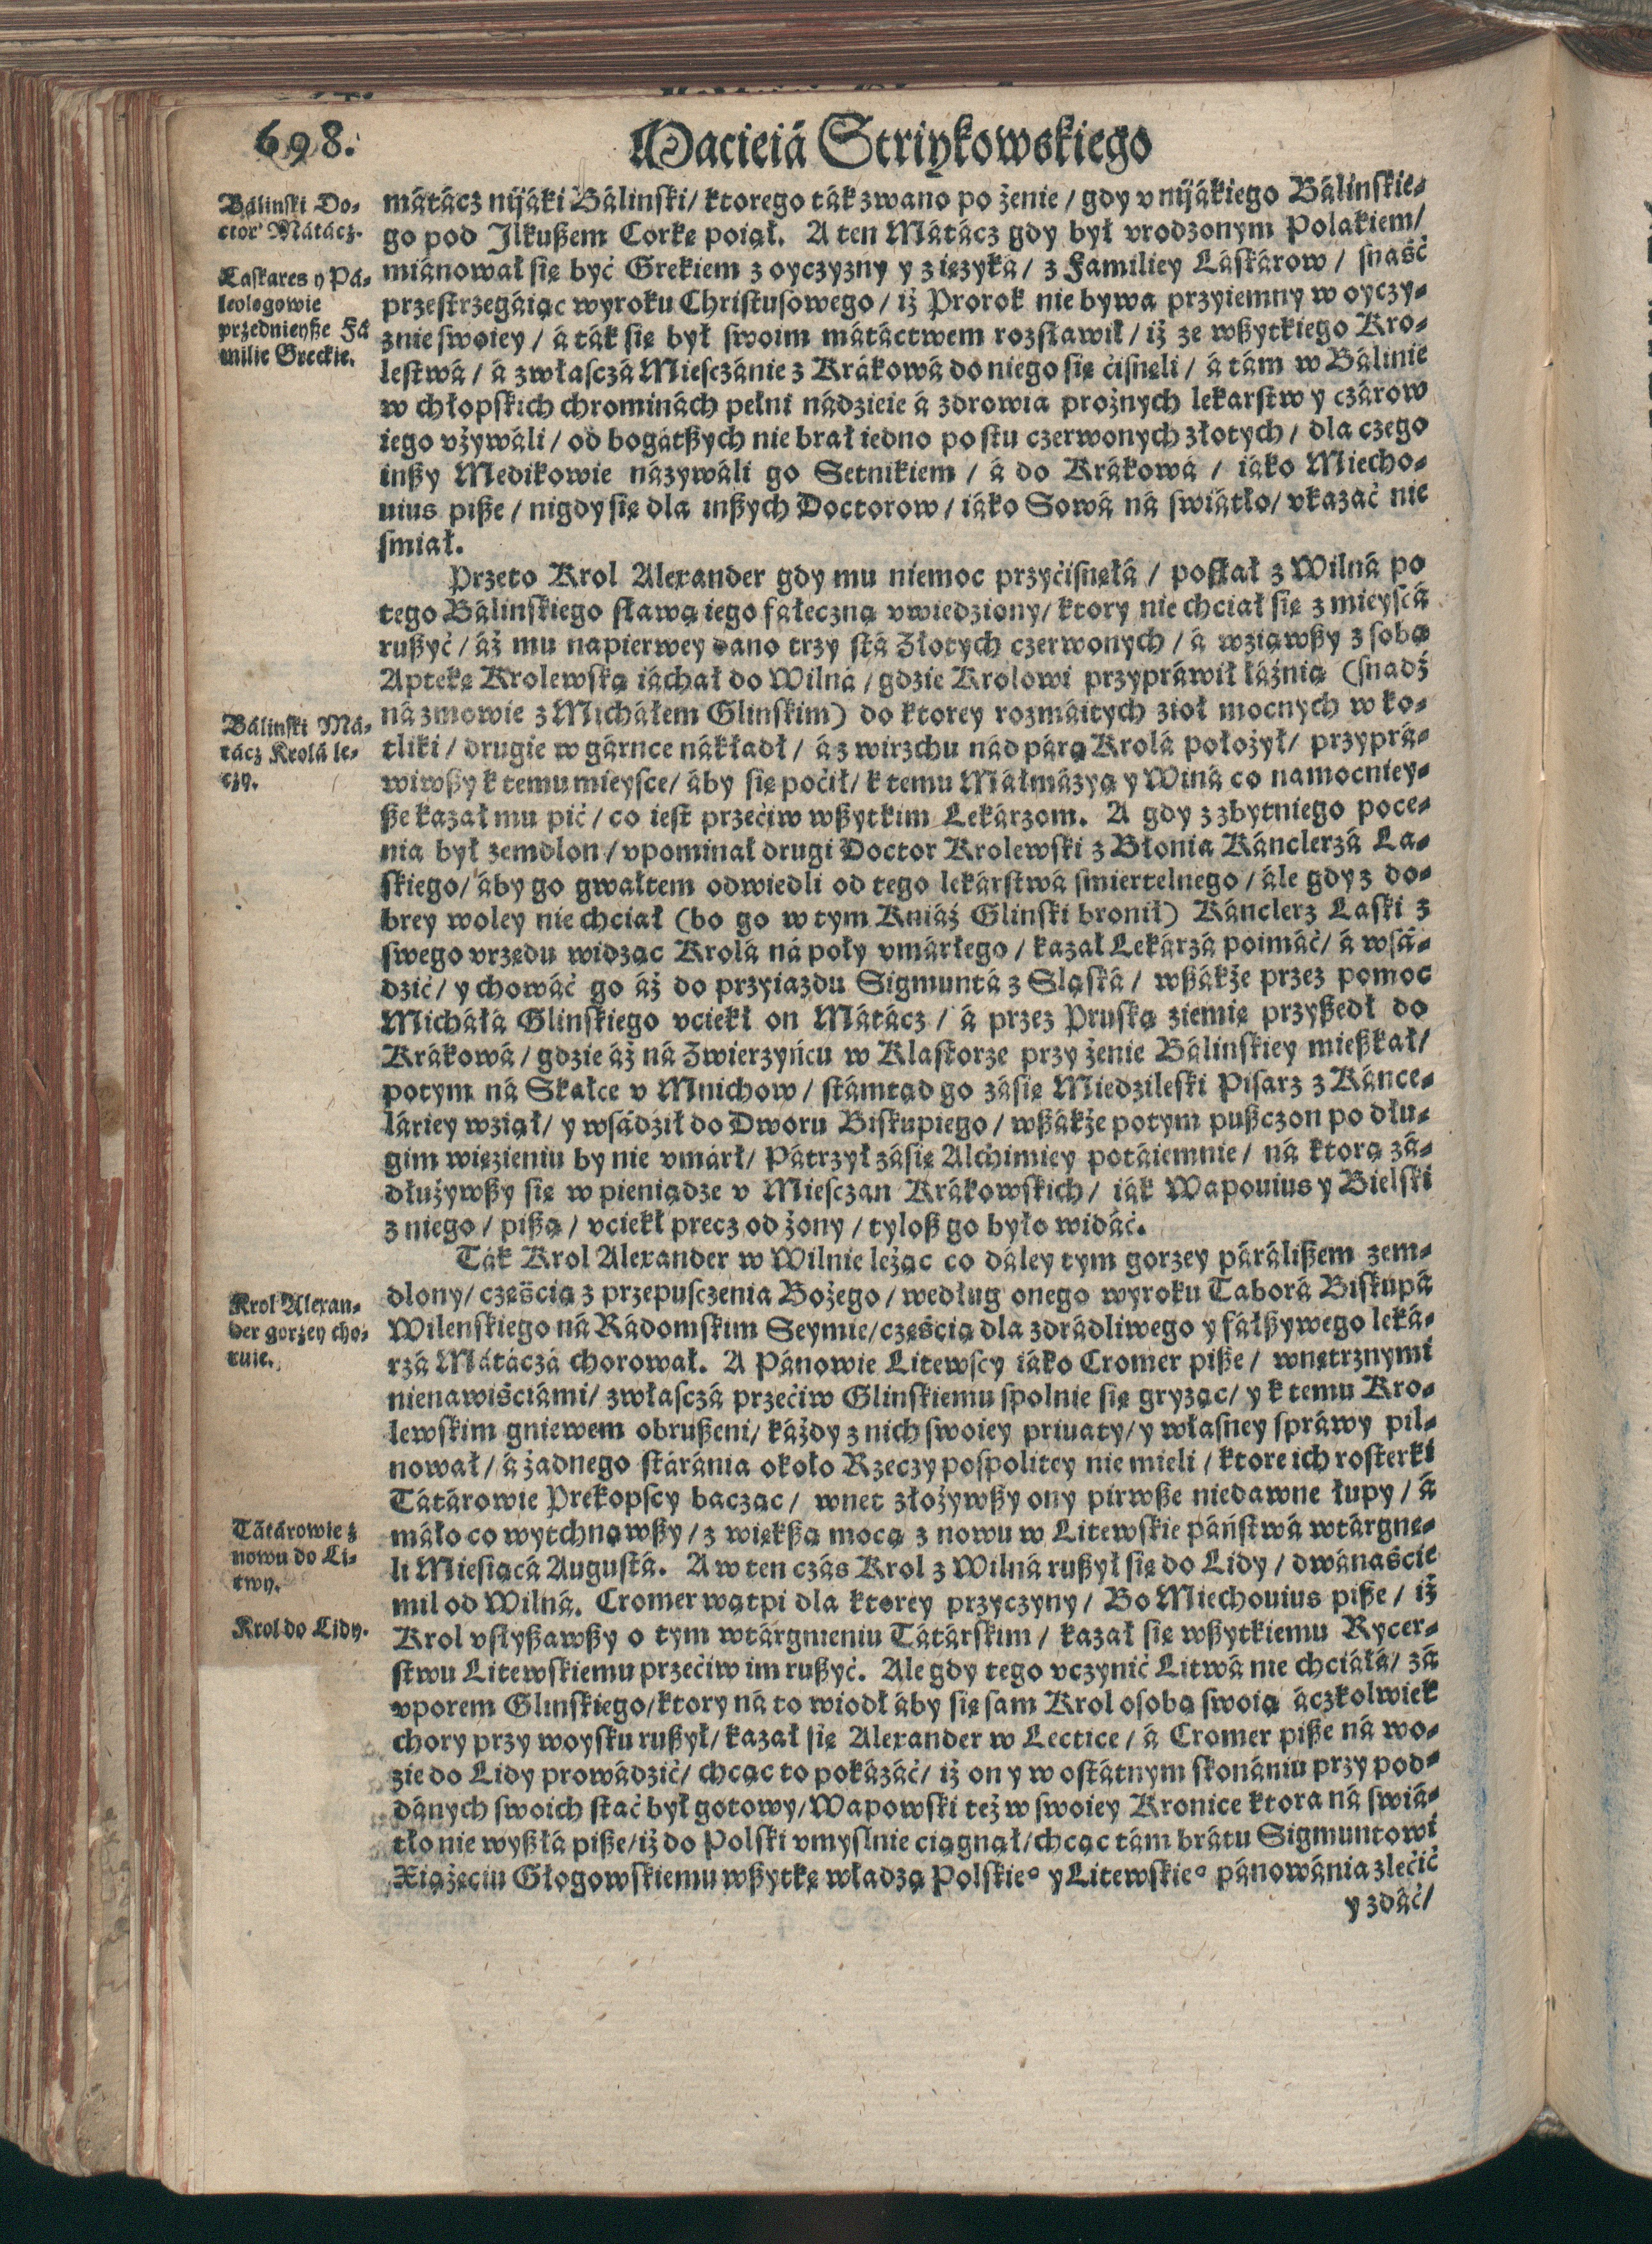 698.
Macieiá Striykowskiego
Bálinski Do-
ctor Mátácz.
Laskares y Pá-
leologowie
przednieyße Fá
milie Greckie.
mátácz nijáki Bálinski/ ktorego ták zwano po żenie / gdy v nijákiego Bálinskie-
go pod Jlkußem Corkę poiął. A ten Mátácz gdy był vrodzonym Polakiem/
miánował się być Grekiem z oyczyzny y z ięzyká / z Familiey Láskárow / snaść
przestrzegáiąc wyroku Christusowego / iż Prorok nie bywa przyiemny w oyczy-
znie swoiey / á ták się był swoim mátáctwem rozsławił / iż ze wßytkiego Kro-
lestwá / á zwłasczá Miesczánie z Krákowá do niego się ćisnęli / á tám w Bálinie
w chłopskich chrominách pełni nádzieie á zdrowia prożnych lekarstw y czárow
iego vżywáli / od bogátßych nie brał iedno po stu czerwonych złotych / dla czego
inßy Medikowie názywáli go Setnikiem / á do Krákowá / iáko Miecho-
uius piße / nigdy się dla inßych Doctorow / iáko Sowá ná swiátło/ vkazáć nie
smiał.
Przeto Krol Alexander gdy mu niemoc przyćisnęłá / posłał z Wilná po
tego Bálinskiego sławą iego fałeczną vwiedziony/ ktory nie chciał się z mieyscá
rußyć / áż mu napierwey dano trzy stá Złotych czerwonych / á wziąwßy z sobą
Aptekę Krolewską iáchał do Wilná / gdzie Krolowi przypráwił łáźnią (snadź
ná zmowie z Micháłem Glinskim) do ktorey rozmáitych zioł mocnych w ko-
Bálinski Má-
tácz Krolá le-
czy.
tliki / drugie w gárnce nákładł / á z wirzchu nád párą Krolá położył/ przyprá-
wiwßy k temu mieysce/ áby się poćił/ k temu Máłmázyą y Winá co namocniey-
ße kazał mu pić / co iest przećiw wßytkim Lekárzom. A gdy z zbytniego poce-
nia był zemdlon / vpominał drugi Doctor Krolewski z Błonia Kánclerzá La-
skiego/ áby go gwałtem odwiedli od tego lekárstwá smiertelnego / ále gdy z do-
brey woley nie chciał (bo go w tym Kniáź Glinski bronił) Kánclerz Laski z
swego vrzędu widząc Krolá ná poły vmárłego / kazał Lekárzá poimáć/ á wsá-
dzić / y chowáć go áż do przyiazdu Sigmuntá z Sląská / wßákże przez pomoc
Micháłá Glinskiego vciekł on Mátácz / á przez Pruską ziemię przyßedł do
Krákowá / gdzie áż ná Zwierzyńcu w Klastorze przy żenie Bálinskiey mießkał/
potym ná Skałce v Mnichow / stámtąd go zásię Miedzileski Pisarz z Kánce-
láriey wziął/ y wsádźił do Dworu Biskupiego / wßákże potym pußczon po dłu-
gim więzieniu by nie vmárł/ Pátrzył zásię Alchimiey potáiemnie / ná ktorą zá-
dłużywßy się w pieniądze v Miesczan Krákowskich/ iák Wapouius y Bielski
z niego / pißą / vciekł precz od żony / tyloß go było widáć.
Ták Krol Alexander w Wilnie leżąc co dáley tym gorzey párálißem zem-
dlony/ częścią z przepusczenia Bożego / według onego wyroku Taborá Biskupá
Krol Alexan-
der gorzey cho-
ruie.
Wilenskiego ná Rádomskim Seymie/częścią dla zdrádliwego y fáłßywego leká-
rzá Mátáczá chorował. A Pánowie Litewscy iáko Cromer piße / wnętrznymi
nienawiściámi/ zwłasczá przećiw Glinskiemu spolnie się gryząc/ y k temu Kro-
lewskim gniewem obrußeni/ káżdy z nich swoiey priuaty/ y własney spráwy pil-
nował / á żadnego stáránia około Rzeczypospolitey nie mieli / ktore ich rosterki
Tátárowie Prekopscy bacząc / wnet złożywßy ony pirwße niedawne łupy / á
Tátárowie z
nowu do Li-
twy.
máło co wytchnąwßy / z więkßą mocą z nowu w Litewskie páństwá wtárgnę-
li Miesiącá Augustá. A w ten czás Krol z Wilná rußył się do Lidy / dwánaście
mil od Wilná. Cromer wątpi dla ktorey przyczyny / Bo Miechouius piße / iż
Krol do Lidy.
Krol vsłyßawßy o tym wtárgnieniu Tátárskim / kazał się wßytkiemu Rycer-
stwu Litewskiemu przećiw im rußyć. Ale gdy tego vczynić Litwá nie chciáłá/ zá
vporem Glinskiego/ktory ná to wiodł áby się sam Krol osobą swoią áczkolwiek
chory przy woysku rußył/ kazał się Alexander w Lectice / á Cromer piße ná wo-
zie do Lidy prowádzić/ chcąc to pokázáć/ iż on y w ostátnym skonániu przy pod-
dánych swoich stać był gotowy/ Wapowski też w swoiey Kronice ktora ná swiá-
tło nie wyßłá piße/ iż do Polski vmyslnie ciągnął/chcąc tám brátu Sigmuntowi
Xiążęciu Głogowskiemu wßytkę władzą Polskieº y Litewskieº pánowánia zlećić
y zdáć/